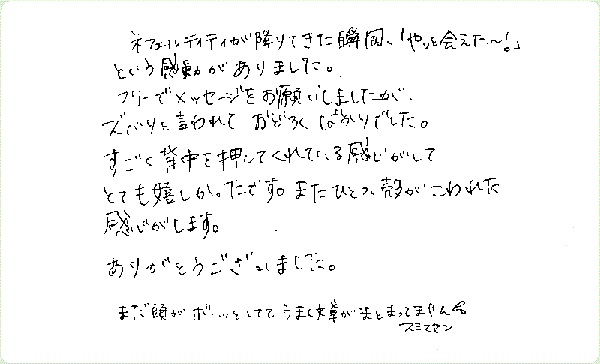 ネフェルティティが降りてきた瞬間、「やっと会えた～!」
という感動がありました。
フリーでメッセージをお願いしましたが、
ズバリと言われて おどろくばかりでした。
すごく背中を押してくれている感じがして
とても嬉しかったです。またひとつ、殻がこわれた
感じがします。
ありがとうございました。
まだ頭がボーッとしてて うまく文章がまとまってません
スミマセン